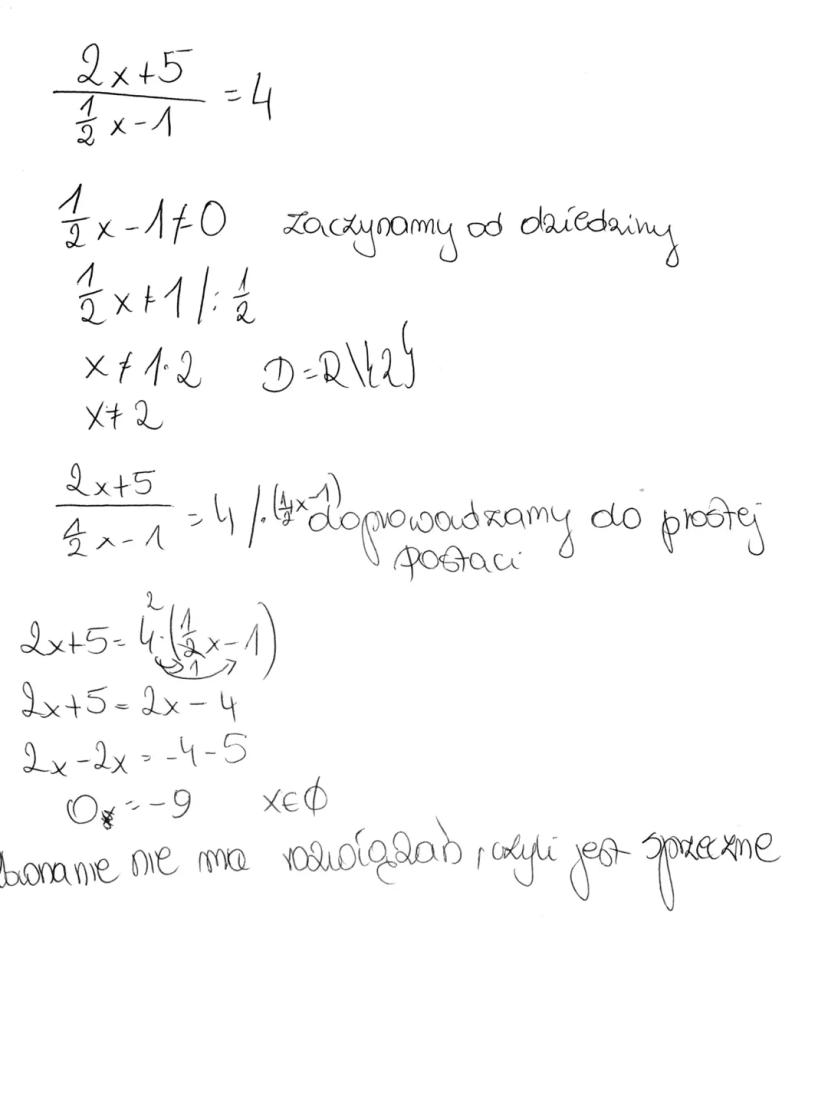 (2x+5)/(1/2 x-1) = 4
1/2 x - 1 ≠ 0 zaczynamy od dziedziny
1/2 x ≠ 1 /: 1/2
x ≠ 1·2 D=R\{2}
x ≠ 2
(2x+5)/(1/2 x-1) = 4 /·(1/2 x-1) doprowadzamy do prostej
postaci
2x+5= 4·(1/2 x-1)
2x+5= 2x-4
2x-2x = -4-5
0x = -9 x∈∅
nie ma rozwiązań, czyli jest sprzeczne